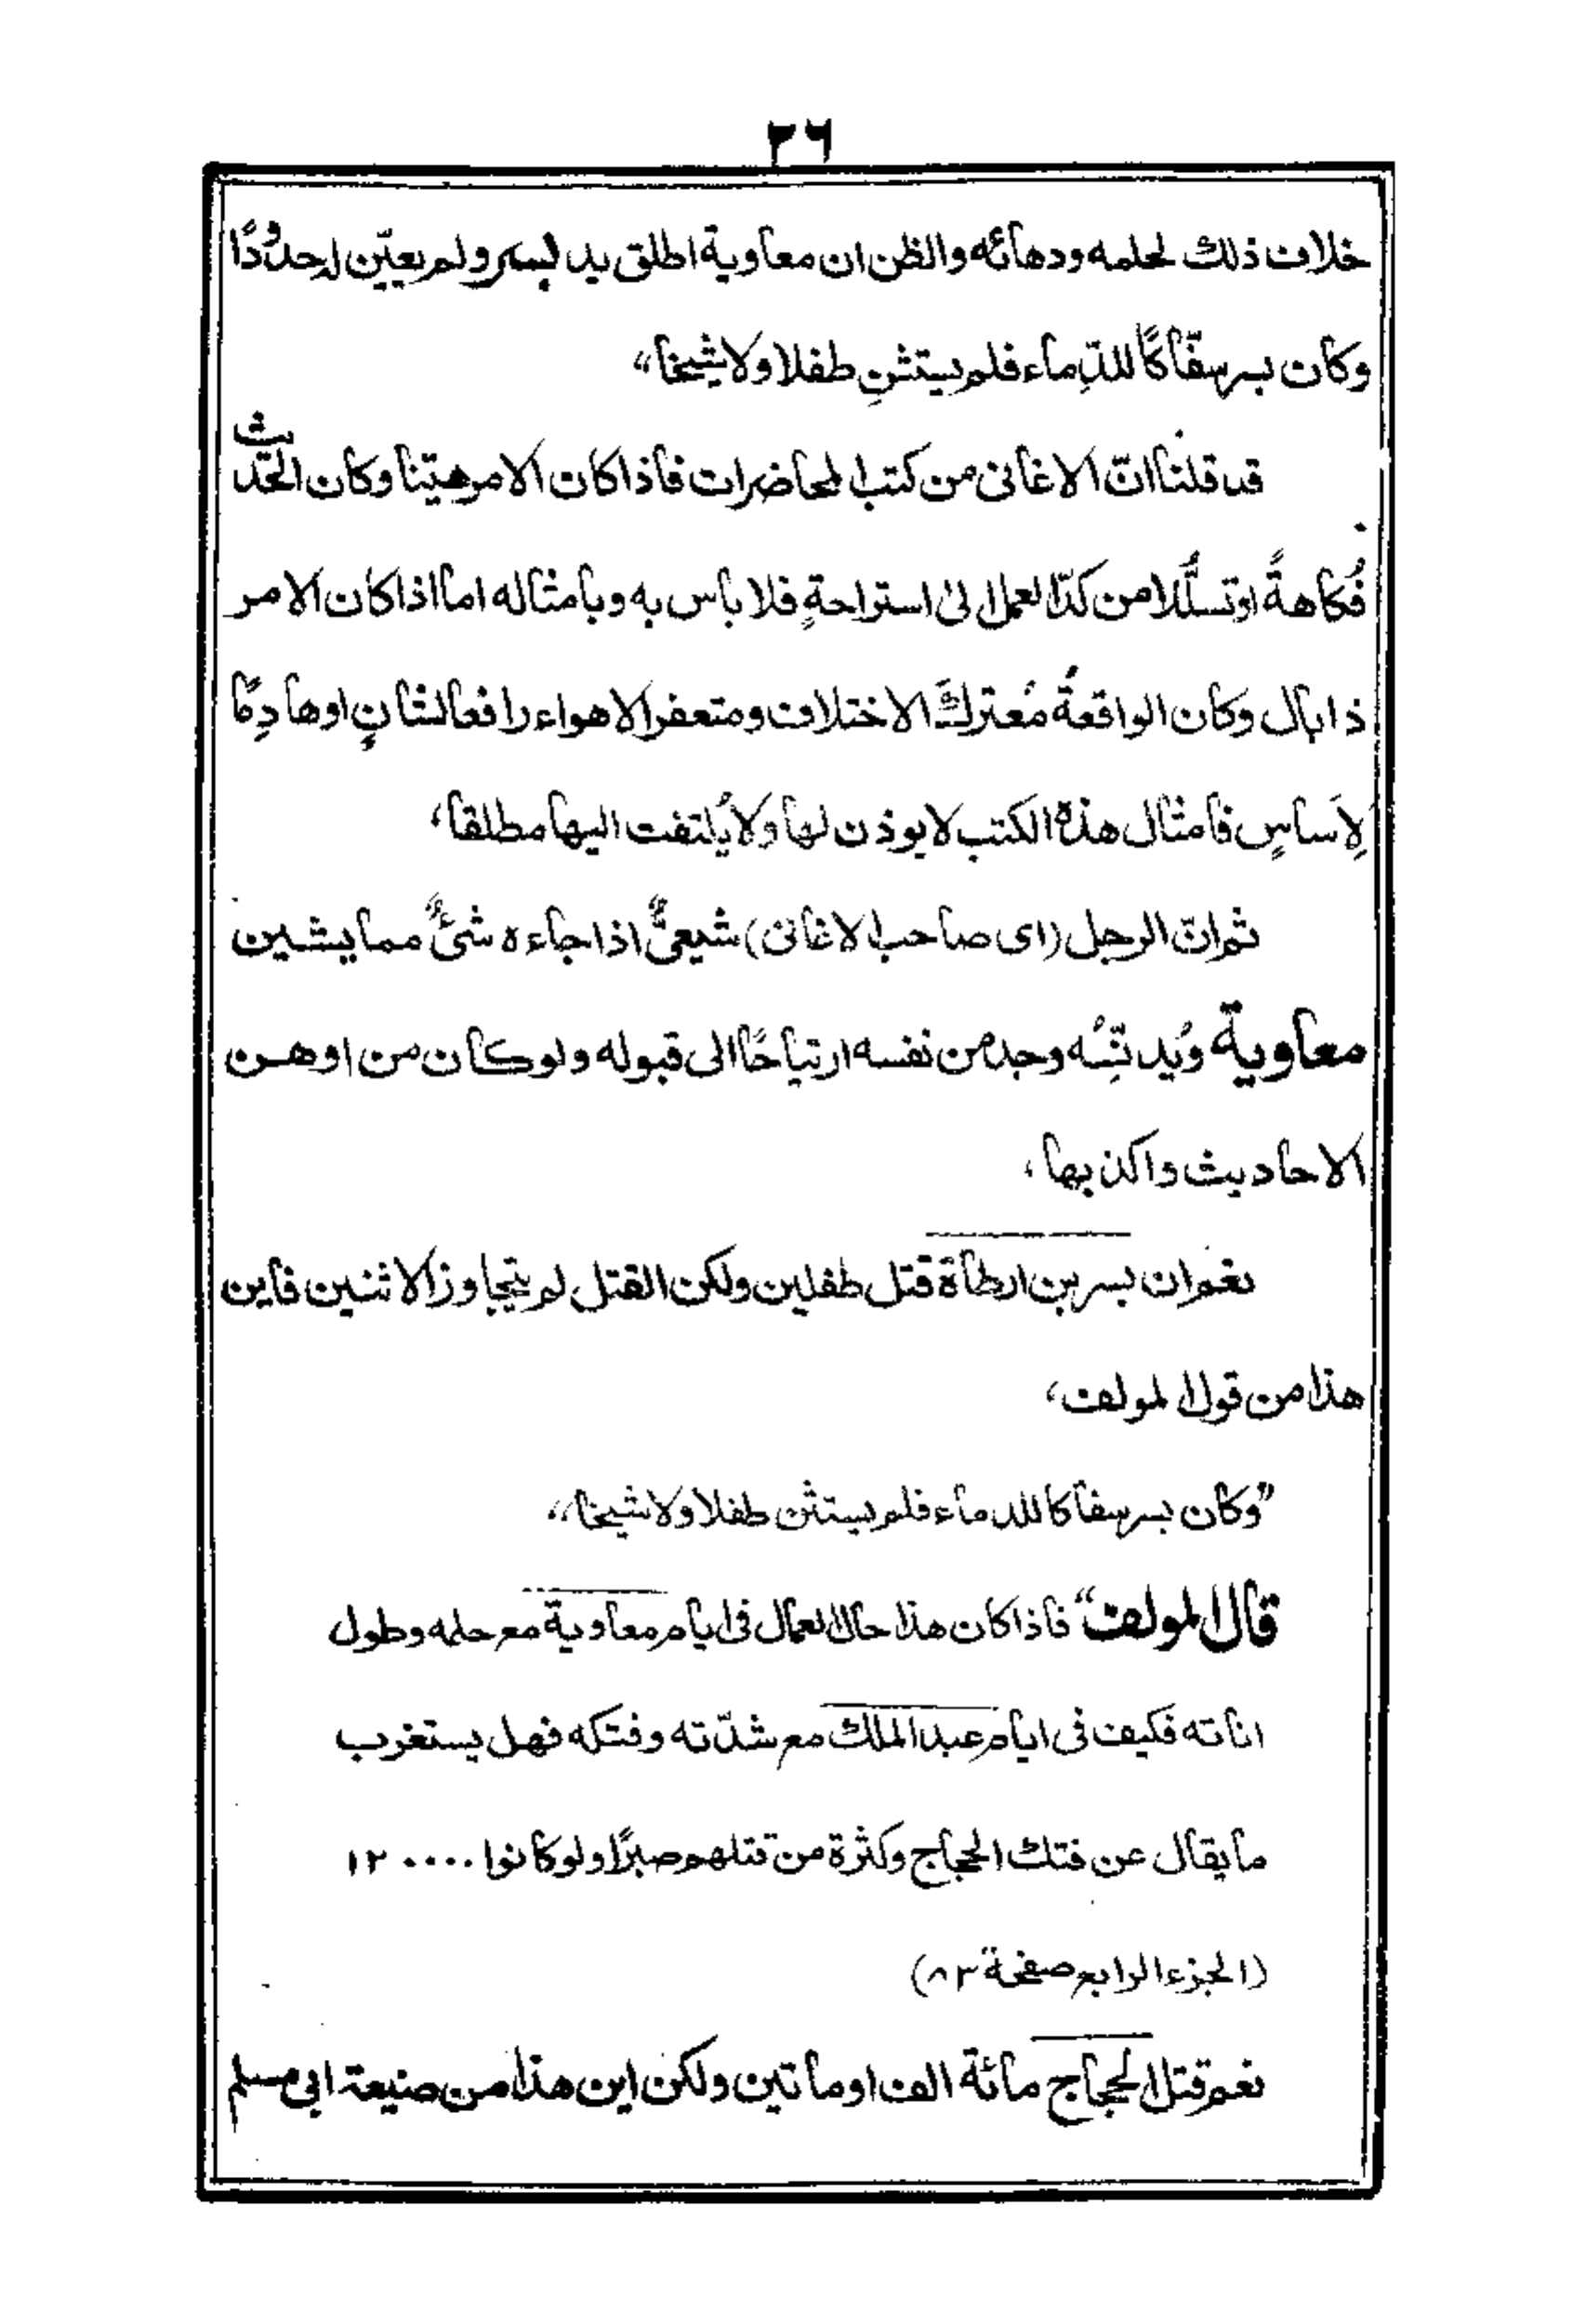 ٢٦
خلاف ذلك لحلمه ودهائه والظن ان معاوية اطلق يد بسر ولم يعيّن له حدُودًا
وكان بسر سفّاكًا للدِّماء فلم يستثنِ طفلا ولا شيخا"
قد قلنا انّ الاغانى من كتب المحاضرات فاذا كان الامر هيّنا وكان الحديث
فُكاهةً او تسلُّلا من كدّ العمل الى استراحةٍ فلا باس به وبامثاله اما اذا كان الامر
ذا بال وكان الواقعةُ مُعتركَ الاختلاف ومتعفر الاهواء رافعا لشانٍ او هادِمًا
لِاَساسٍ فامثال هذه الكتب لا يوذن لها ولا يُلتفت اليها مطلقا،
ثم انّ الرجل (اى صاحب الاغانى) شيعىٌّ اذا جاءه شىءٌ مما يشين
معاوية ويُدنِّسُه وجد من نفسه ارتياحًا الى قبوله ولو كان من اوهن
الاحاديث واكذبها،
نعم ان بسر بن ارطأة قتل طفلين ولكن القتل لم يتجاوز الاثنين فاين
هذا من قول المولف،
"وكان بسر سفاكا للدماء فلم يستثن طفلا ولا شيخا"
قال المولف "فاذا كان هذا حال العمال فى ايام معاوية مع حلمه وطول
اناته فكيف فى ايام عبد الملك مع شدّته وفتكه فهل يستغرب
ما يقال عن فتك الحجاج وكثرة من قتلهم صبرًا ولو كانوا ١٢٠٠٠٠
(الجزء الرابع صفحة ٨٣)
نعم قتل الحجاج مائة الف او ماتين ولكن اين هذا من صنيعة ابى مسلم